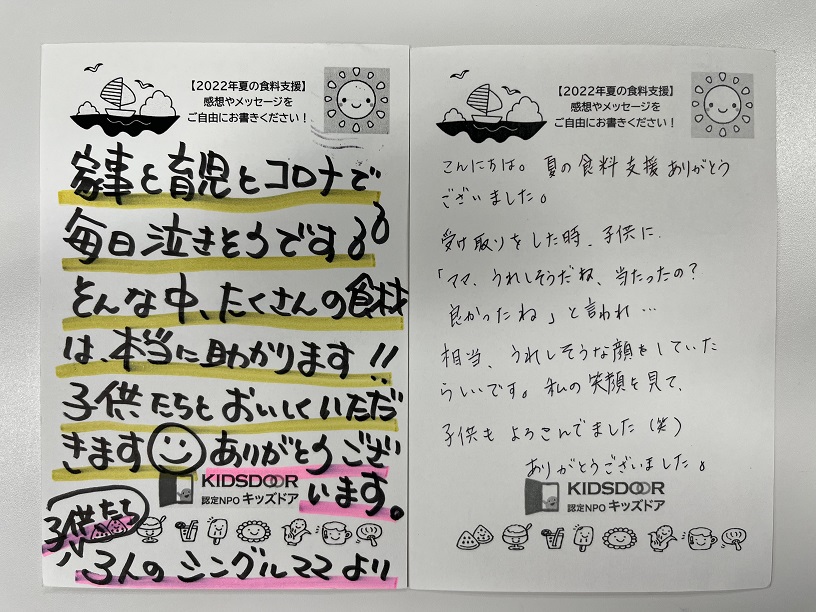 【2022年夏の食料支援】
感想やメッセージを
ご自由にお書きください！
家事と育児とコロナで
毎日泣きそうです
そんな中、たくさんの食材
は、本当に助かります!!
子供たちとおいしくいただ
きます ありがとうござい
います。
KIDSDOOR
認定NPO キッズドア
子供たち
3人のシングルママより
【2022年夏の食料支援】
感想やメッセージを
ご自由にお書きください！
こんにちは。夏の食料支援ありがとう
ございました。
受け取りをした時、子供に
「ママ、うれしそうだね、当たったの？
良かったね」と言われ…
相当、うれしそうな顔をしていた
らしいです。私の笑顔を見て、
子供もよろこんでました（笑）
ありがとうございました。
KIDSDOOR
認定NPO キッズドア